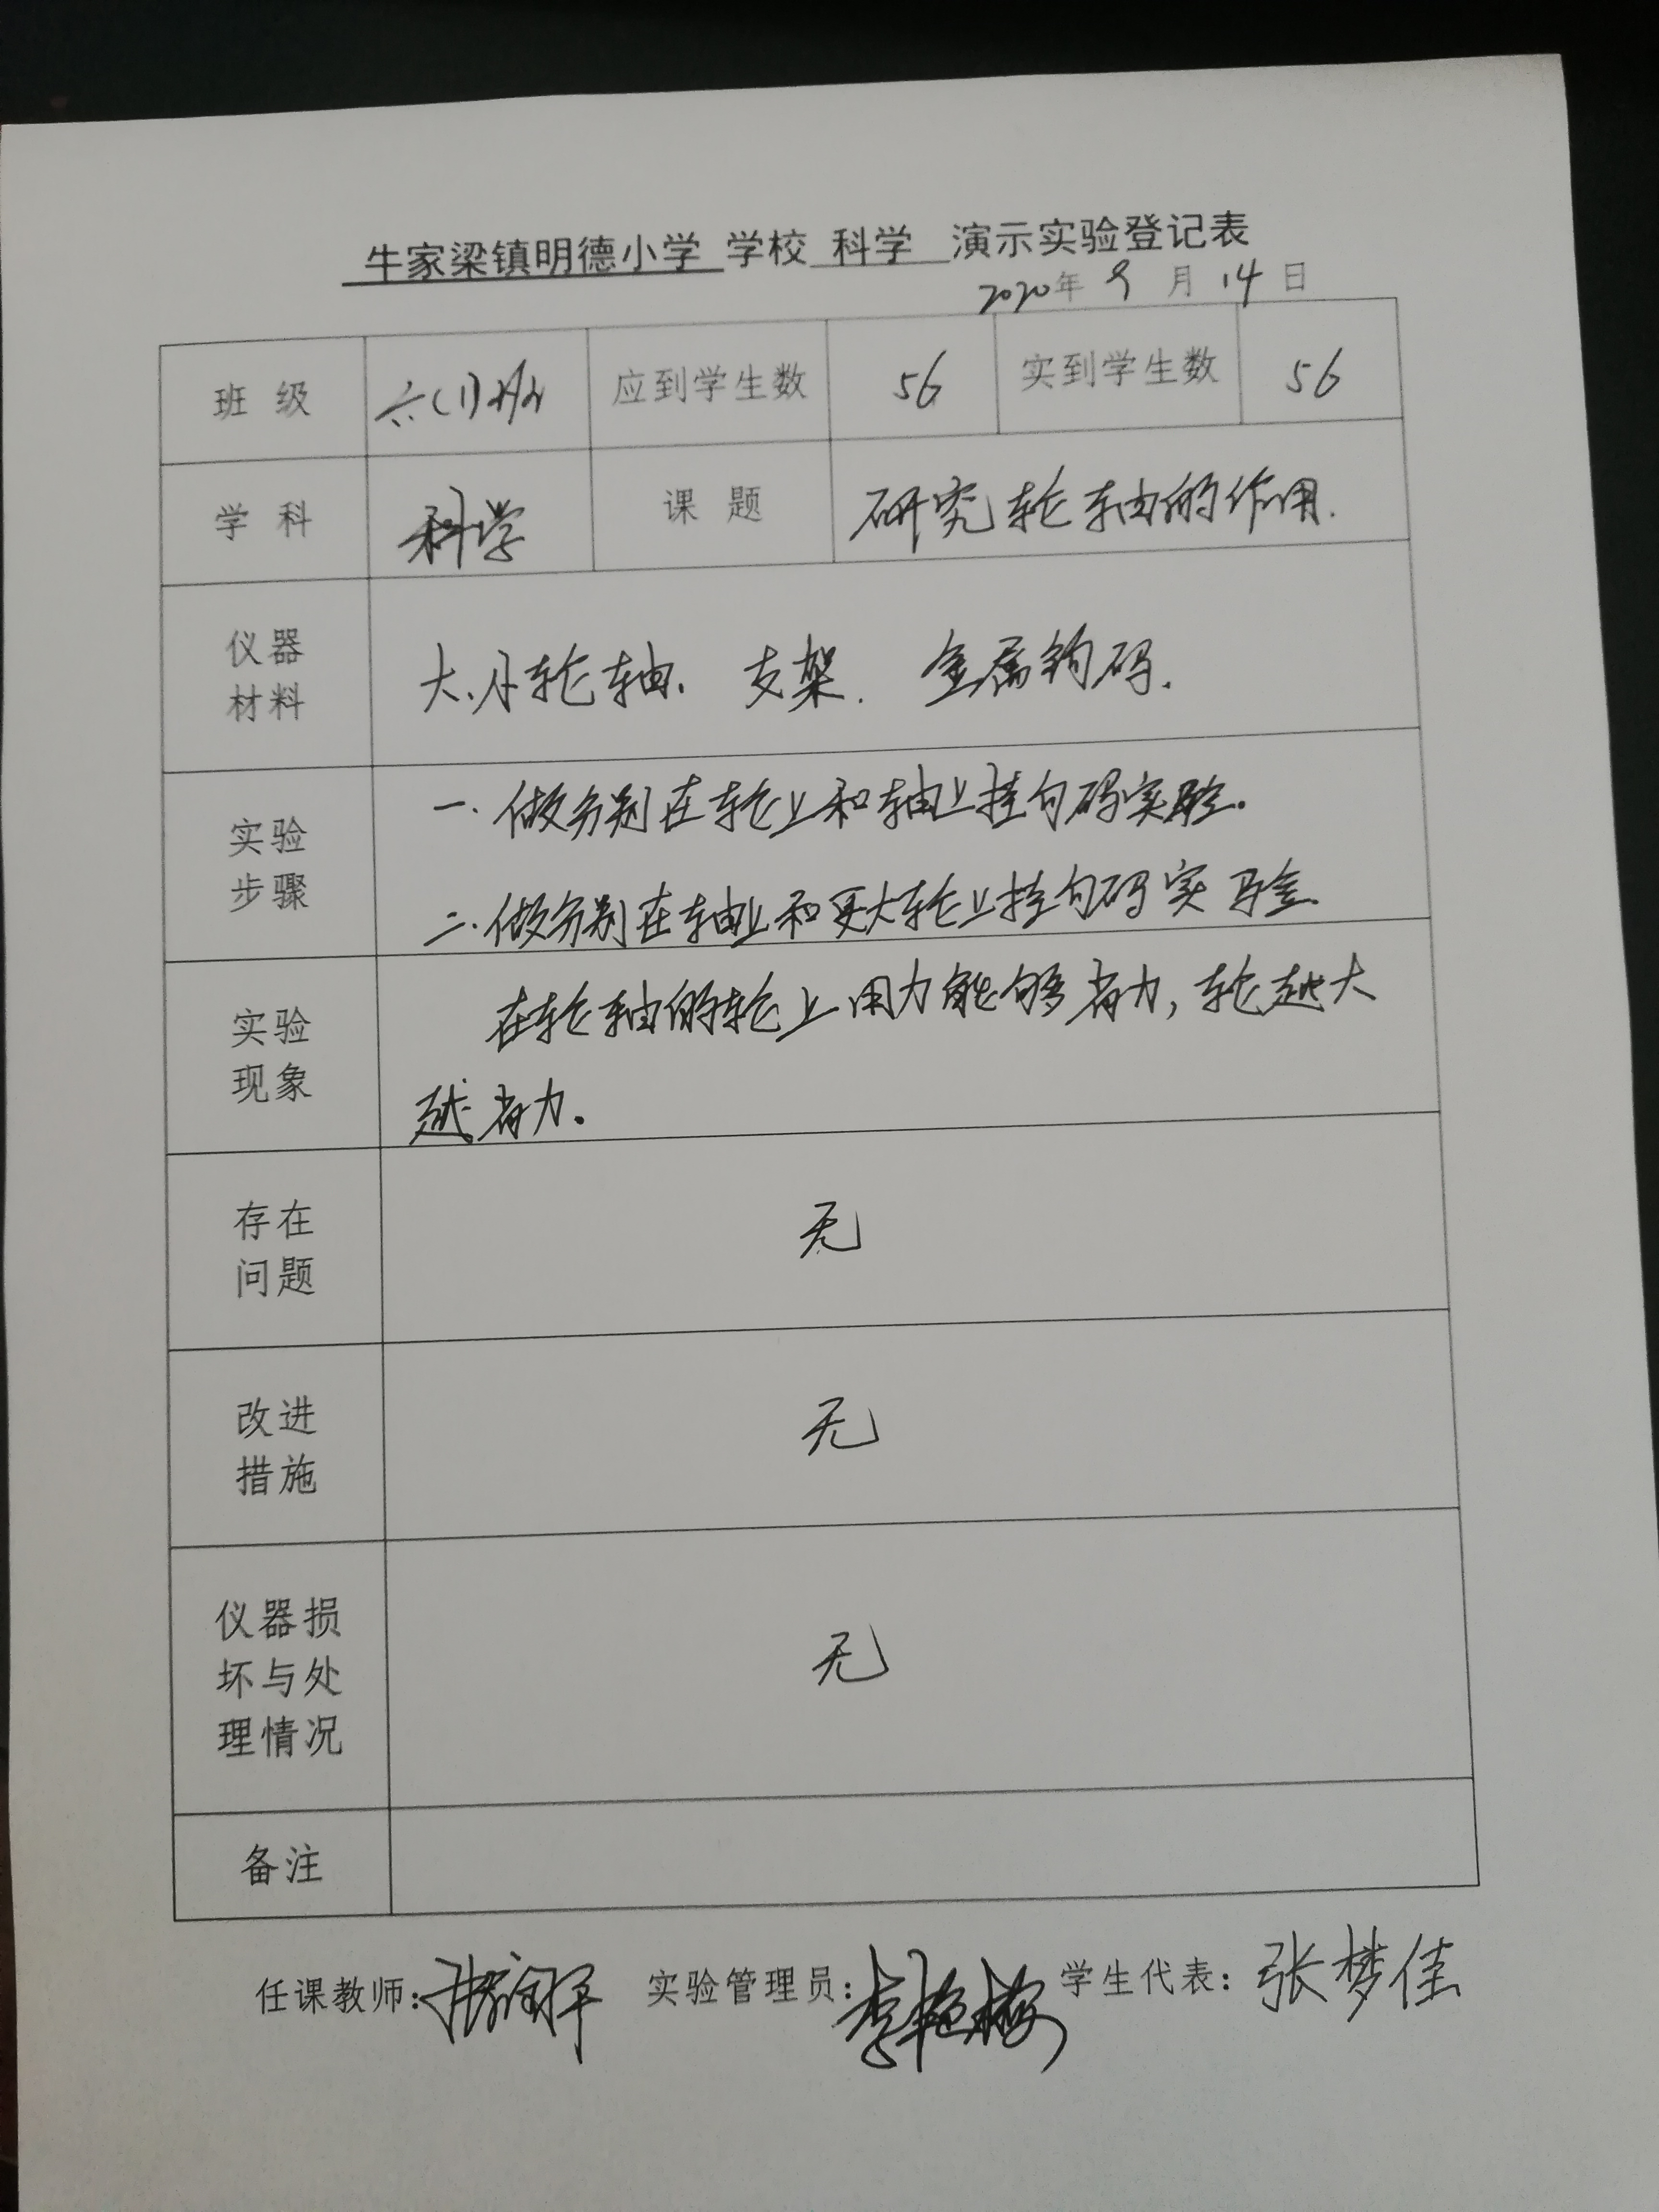 牛家梁镇明德小学 学校 科学 演示实验登记表
2020年 9 月 14 日
班 级 六(1)班 应到学生数 56 实到学生数 56
学 科 科学 课 题 研究轮轴的作用.
仪器
材料
大、小轮轴、 支架. 金属钩码.
实验
步骤
一. 做分别在轮上和轴上挂勾码实验.
二. 做分别在轴上和更大轮上挂勾码实验.
实验
现象
在轮轴的轮上用力能够省力, 轮越大
越省力.
存在
问题
无
改进
措施
无
仪器损
坏与处
理情况
无
备注
任课教师: 实验管理员: 李艳梅 学生代表: 张梦佳